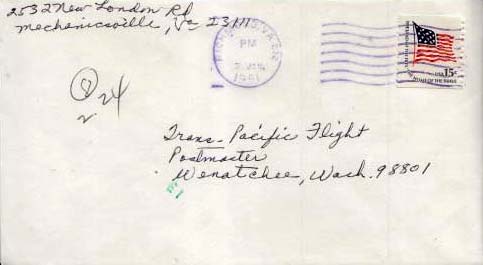 2532 New London Rd
Mechanicsville, Va 23111
PM
1981
USA 15c
24
2
Trans-Pacific Flight
Postmaster
Wenatchee, Wash. 98801